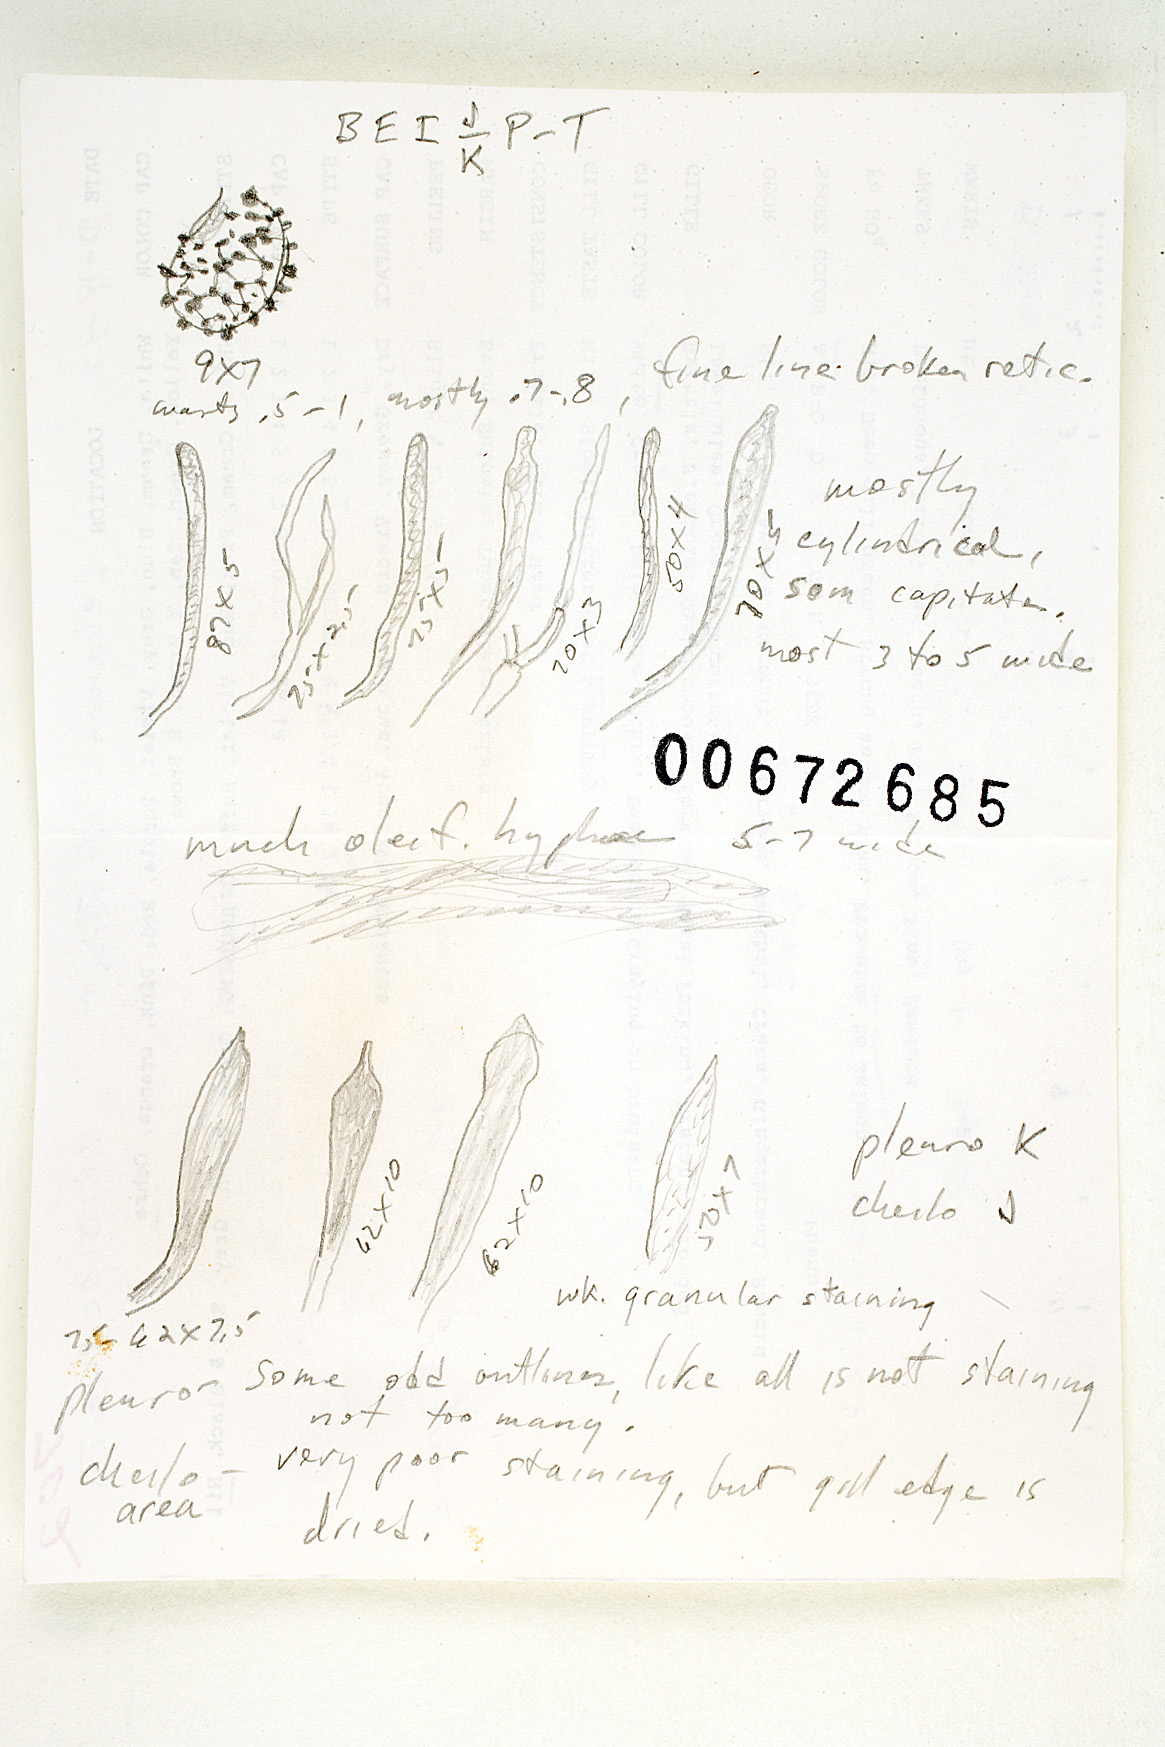 BEI J/K P-T
9x7
warts .5-1, mostly .7-.8, fine line broken retic.
87x5
75x5
70x3
50x4
70x
mostly
cylindrical,
som capitate.
most 3 to 5 wide
00672685
much oleif. hyphae 5-7 wide
62x10
62x10
50x7
pleuro K
cheilo J
wk. granular staining
62x7.5
pleuro - some odd outlines, like all is not staining
not too many.
cheilo - very poor staining, but gill edge is
area
dried.